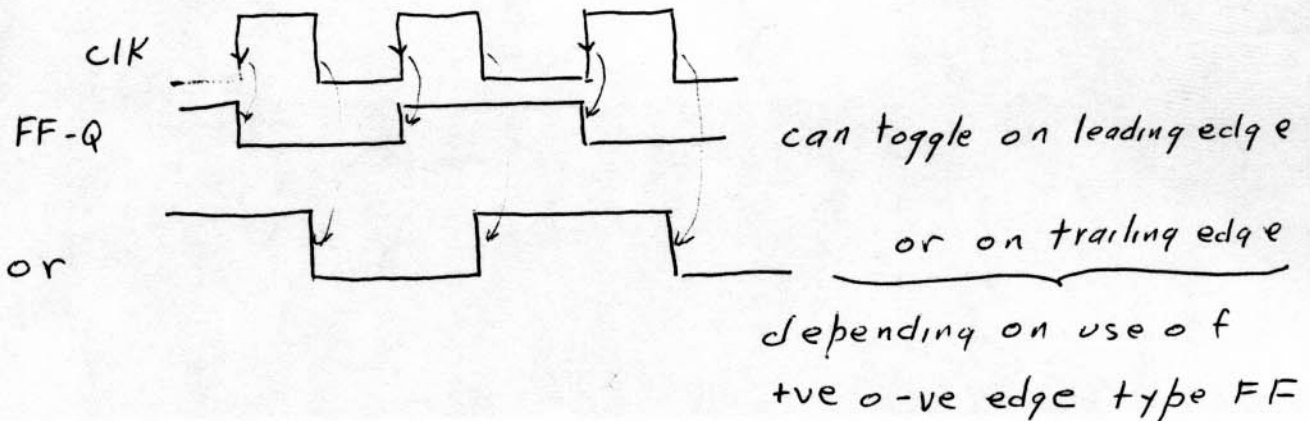 clK
FF-Q
can toggle on leading edge
or on trailing edge
or
depending on use of
+ve o -ve edge type FF